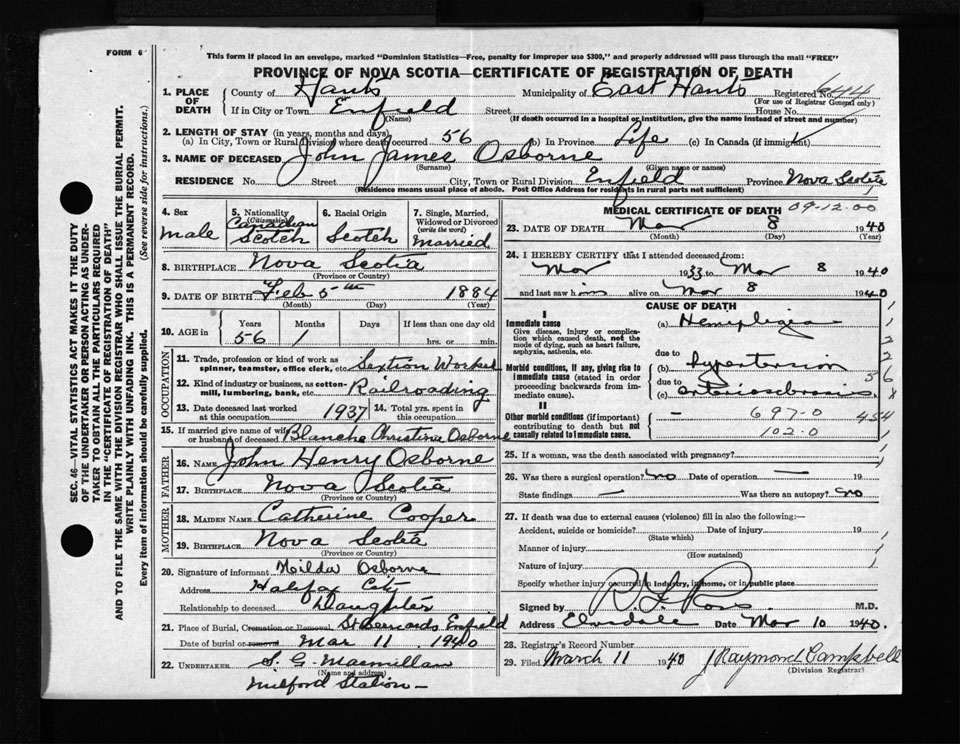 FORM 6
This form if placed in an envelope, marked "Dominion Statistics—Free, penalty for improper use $300," and properly addressed will pass through the mail "FREE"
PROVINCE OF NOVA SCOTIA—CERTIFICATE OF REGISTRATION OF DEATH
SEC. 46—VITAL STATISTICS ACT MAKES IT THE DUTY
OF THE UNDERTAKER OR PERSON ACTING AS UNDERTAKER
TO OBTAIN ALL THE PARTICULARS REQUIRED
IN THE "CERTIFICATE OF REGISTRATION OF DEATH"
AND TO FILE THE SAME WITH THE DIVISION REGISTRAR WHO SHALL ISSUE THE BURIAL PERMIT.
WRITE PLAINLY WITH UNFADING INK. THIS IS A PERMANENT RECORD.
Every item of information should be carefully supplied. (See reverse side for instructions.)
1. PLACE OF DEATH County of Hants Municipality of East Hants Registered No. 644
(For use of Registrar General only)
If in City or Town Enfield Street House No.
(Name) (If death occurred in a hospital or institution, give the name instead of street and number)
2. LENGTH OF STAY (in years, months and days)
(a) In City, Town or Rural Division where death occurred 56 (b) In Province Life (c) In Canada (if immigrant)
3. NAME OF DECEASED John James Osborne
(Surname) (Given name or names)
RESIDENCE No. Street City, Town or Rural Division Enfield Province Nova Scotia
(Residence means usual place of abode. Post Office Address for residents in rural parts not sufficient)
4. Sex
male
5. Nationality (Citizenship)
Canadian
Scotch
6. Racial Origin
Scotch
7. Single, Married, Widowed or Divorced (write the word)
Married
8. BIRTHPLACE Nova Scotia
(Province or Country)
9. DATE OF BIRTH Feb 5th 1884
(Month) (Day) (Year)
10. AGE in Years Months Days If less than one day
56 1 hrs. or min.
OCCUPATION
11. Trade, profession or kind of work as spinner, teamster, office clerk, etc. Sextion Worker
12. Kind of industry or business, as cotton-mill, lumbering, bank, etc. Railroading
13. Date deceased last worked at this occupation. 1937 14. Total yrs. spent in this occupation.
15. If married give name of wife or husband of deceased Blanche Christine Osborne
FATHER
16. NAME John Henry Osborne
17. BIRTHPLACE Nova Scotia
(Province or Country)
MOTHER
18. MAIDEN NAME Catherine Cooper
19. BIRTHPLACE Nova Scotia
(Province or Country)
20. Signature of informant Hilda Osborne
Address Halifax City
Relationship to deceased Daughter
21. Place of Burial, Cremation or Removal St Bernards Enfield
Date of burial or removal Mar 11 1940
22. UNDERTAKER S. G. Macmillan
(Name and address)
Milford Station
MEDICAL CERTIFICATE OF DEATH 09-12-00
23. DATE OF DEATH Mar 8 1940
(Month) (Day) (Year)
24. I HEREBY CERTIFY that I attended deceased from:
Mar 1933 to Mar 8 1940
and last saw him alive on Mar 8 1940
CAUSE OF DEATH
I
Immediate cause
Give disease, injury or complication which caused death, not the mode of dying, such as heart failure, asphyxia, asthenia, etc.
(a) Hemiplegia
due to
Morbid conditions, if any, giving rise to immediate cause (stated in order proceeding backwards from immediate cause).
(b) hypertension
due to
(c) arteriosclerosis
II
Other morbid conditions (if important) contributing to death but not causally related to immediate cause.
697-0
102.0
454
25. If a woman, was the death associated with pregnancy?
26. Was there a surgical operation? no Date of operation — 19
State findings — Was there an autopsy? no
27. If death was due to external causes (violence) fill in also the following:—
Accident, suicide or homicide? Date of injury 19
(State which)
Manner of injury
(How sustained)
Nature of injury
Specify whether injury occurred in industry, in home, or in public place
Signed by R. L. Ross M.D.
Address Elmsdale Date Mar 10 1940.
28. Registrar's Record Number
29. Filed March 11 1940 J Raymond Campbell
(Division Registrar)